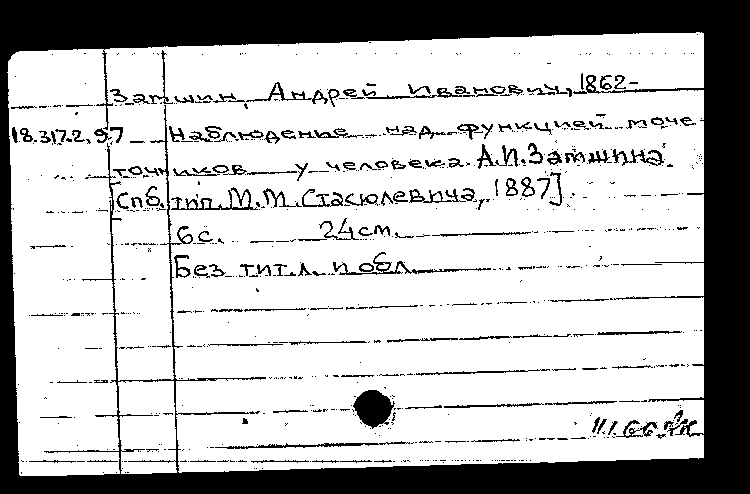 Затшин, Андрей Иванович, 1862-
18.317.2.97 Наблюдение над функцией моче-
точников у человека А.И.Затшина.
[Спб. тип. М.М. Стасюлевича, 1887].
6с. 24см.
Без тит.л. и обл.